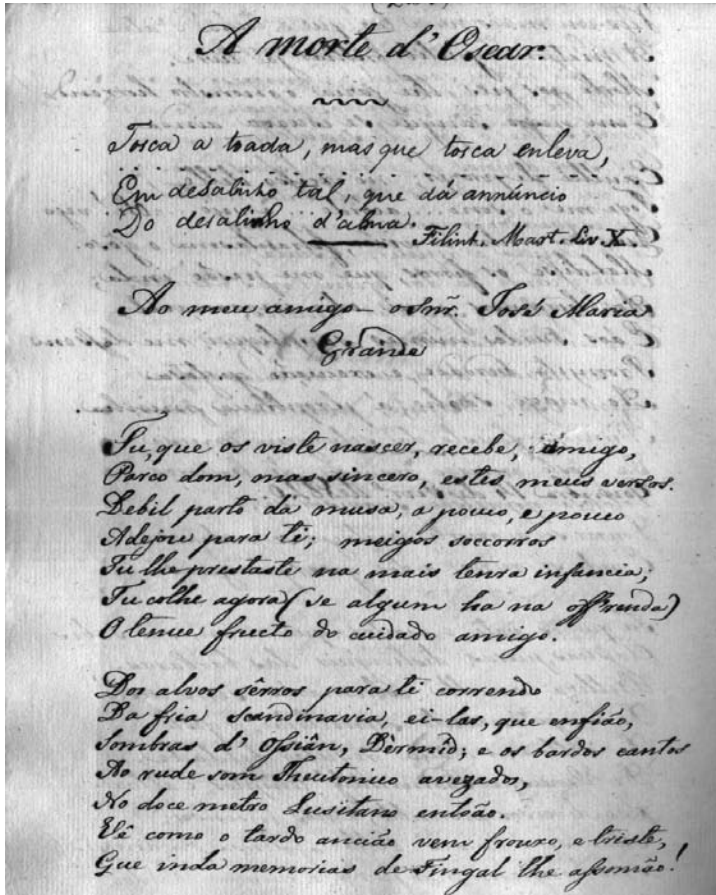 A morte d'Oscar.
Tosca a toada, mas que tosca enleva,
Em desalinho tal, que dá annúncio
Do desalinho d'alma.
Filint. Mart. Liv X.
Ao meu amigo o Snr. José Maria
Grande
Tu, que os viste nascer, recebe, amigo,
Parco dom, mas sincero, estes meus versos.
Debil parto da musa, a pouco, e pouco
Adejou para ti; meigos soccorros
Tu lhe prestaste na mais tenra infancia;
Tu colhe agora (se algum ha na offrenda)
O tenue fructo do cuidado amigo.
Dos alvos sêrros para ti correndo
Da fria Scandinavia, ei-las, que enfião,
Sombras d'Ossiân, Dèrmid; e os bardos cantos
Ao rude som Theutonico avezados,
No doce metro Lusitano entoão.
Vê como o tardo ancião vem frouxo, e triste,
Que inda memorias de Fingal lhe assomão!